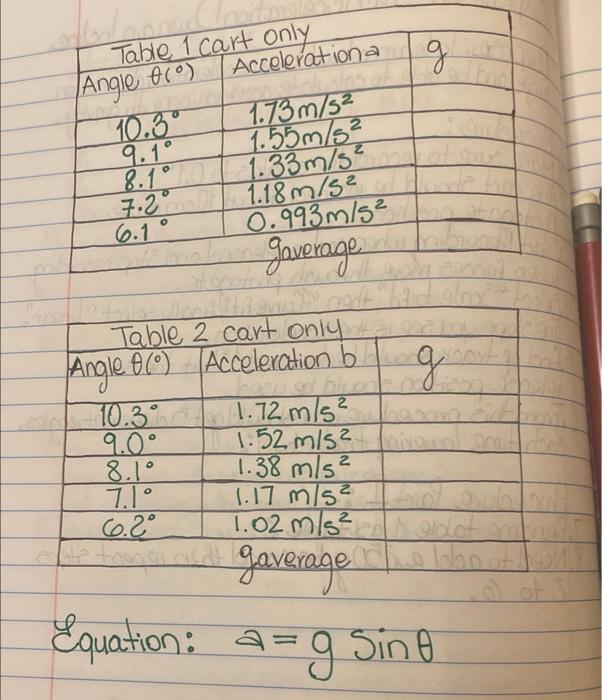 Table 1 cart only
Angle θ(°) Acceleration a g
10.3° 1.73m/s²
9.1° 1.55m/s²
8.1° 1.33m/s²
7.2° 1.18m/s²
6.1° 0.993m/s²
gaverage
Table 2 cart only
Angle θ(°) Acceleration b g
10.3° 1.72 m/s²
9.0° 1.52 m/s²
8.1° 1.38 m/s²
7.1° 1.17 m/s²
6.2° 1.02 m/s²
gaverage
Equation: a = g Sin θ